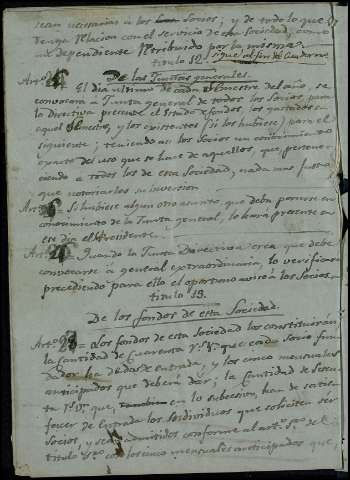 sean necesarias à los Socios; y de todo lo q.e
tenga relacion con el servicio de esta Sociedad, como
un dependiente retribuido por la misma.
titulo 12. sigue al fin del Cuaderno
De las Juntas generales.
Art.o = El dia ultimo de cada Semestre del año, se
convocara à Junta general de todos los Socios para
la Directiva presente el Estado de fondos, los gastados en
aquel Semestre, y los existentes (si los hubiese) para el
siguiente; teniendo asi los Socios un conocimiento
exacto del uso que se hace de aquellos, que pertene-
ciendo à todos los de esta Sociedad, nada mas justo
que notoriarlos su inversion.
Art.o = Si hubiese algun otro asunto que deba ponerse en
conocimiento de la Junta general, lo hará presente en
ese dia el Presidente.
Art.o = Quando la Junta Directiva crea que debe
convocarse à general extraordinaria, lo verificará
precediendo para ello el oportuno aviso à los Socios.
titulo 13.
De los fondos de esta Sociedad.
Art.o 28 = Los fondos de esta Sociedad los constituirán
la Cantidad de Cuarenta r.s v.n que cada Socio fun-
dador ha de dar de entrada, y los cinco mensuales
anticipados que deberá dar; la Cantidad de Sesen-
ta r.s v.n que, en lo subcesivo, han de satis-
facer de entrada los individuos que soliciten ser
Socios, y sean admitidos conforme al art.o
titulo con los cinco mensuales anticipados que,